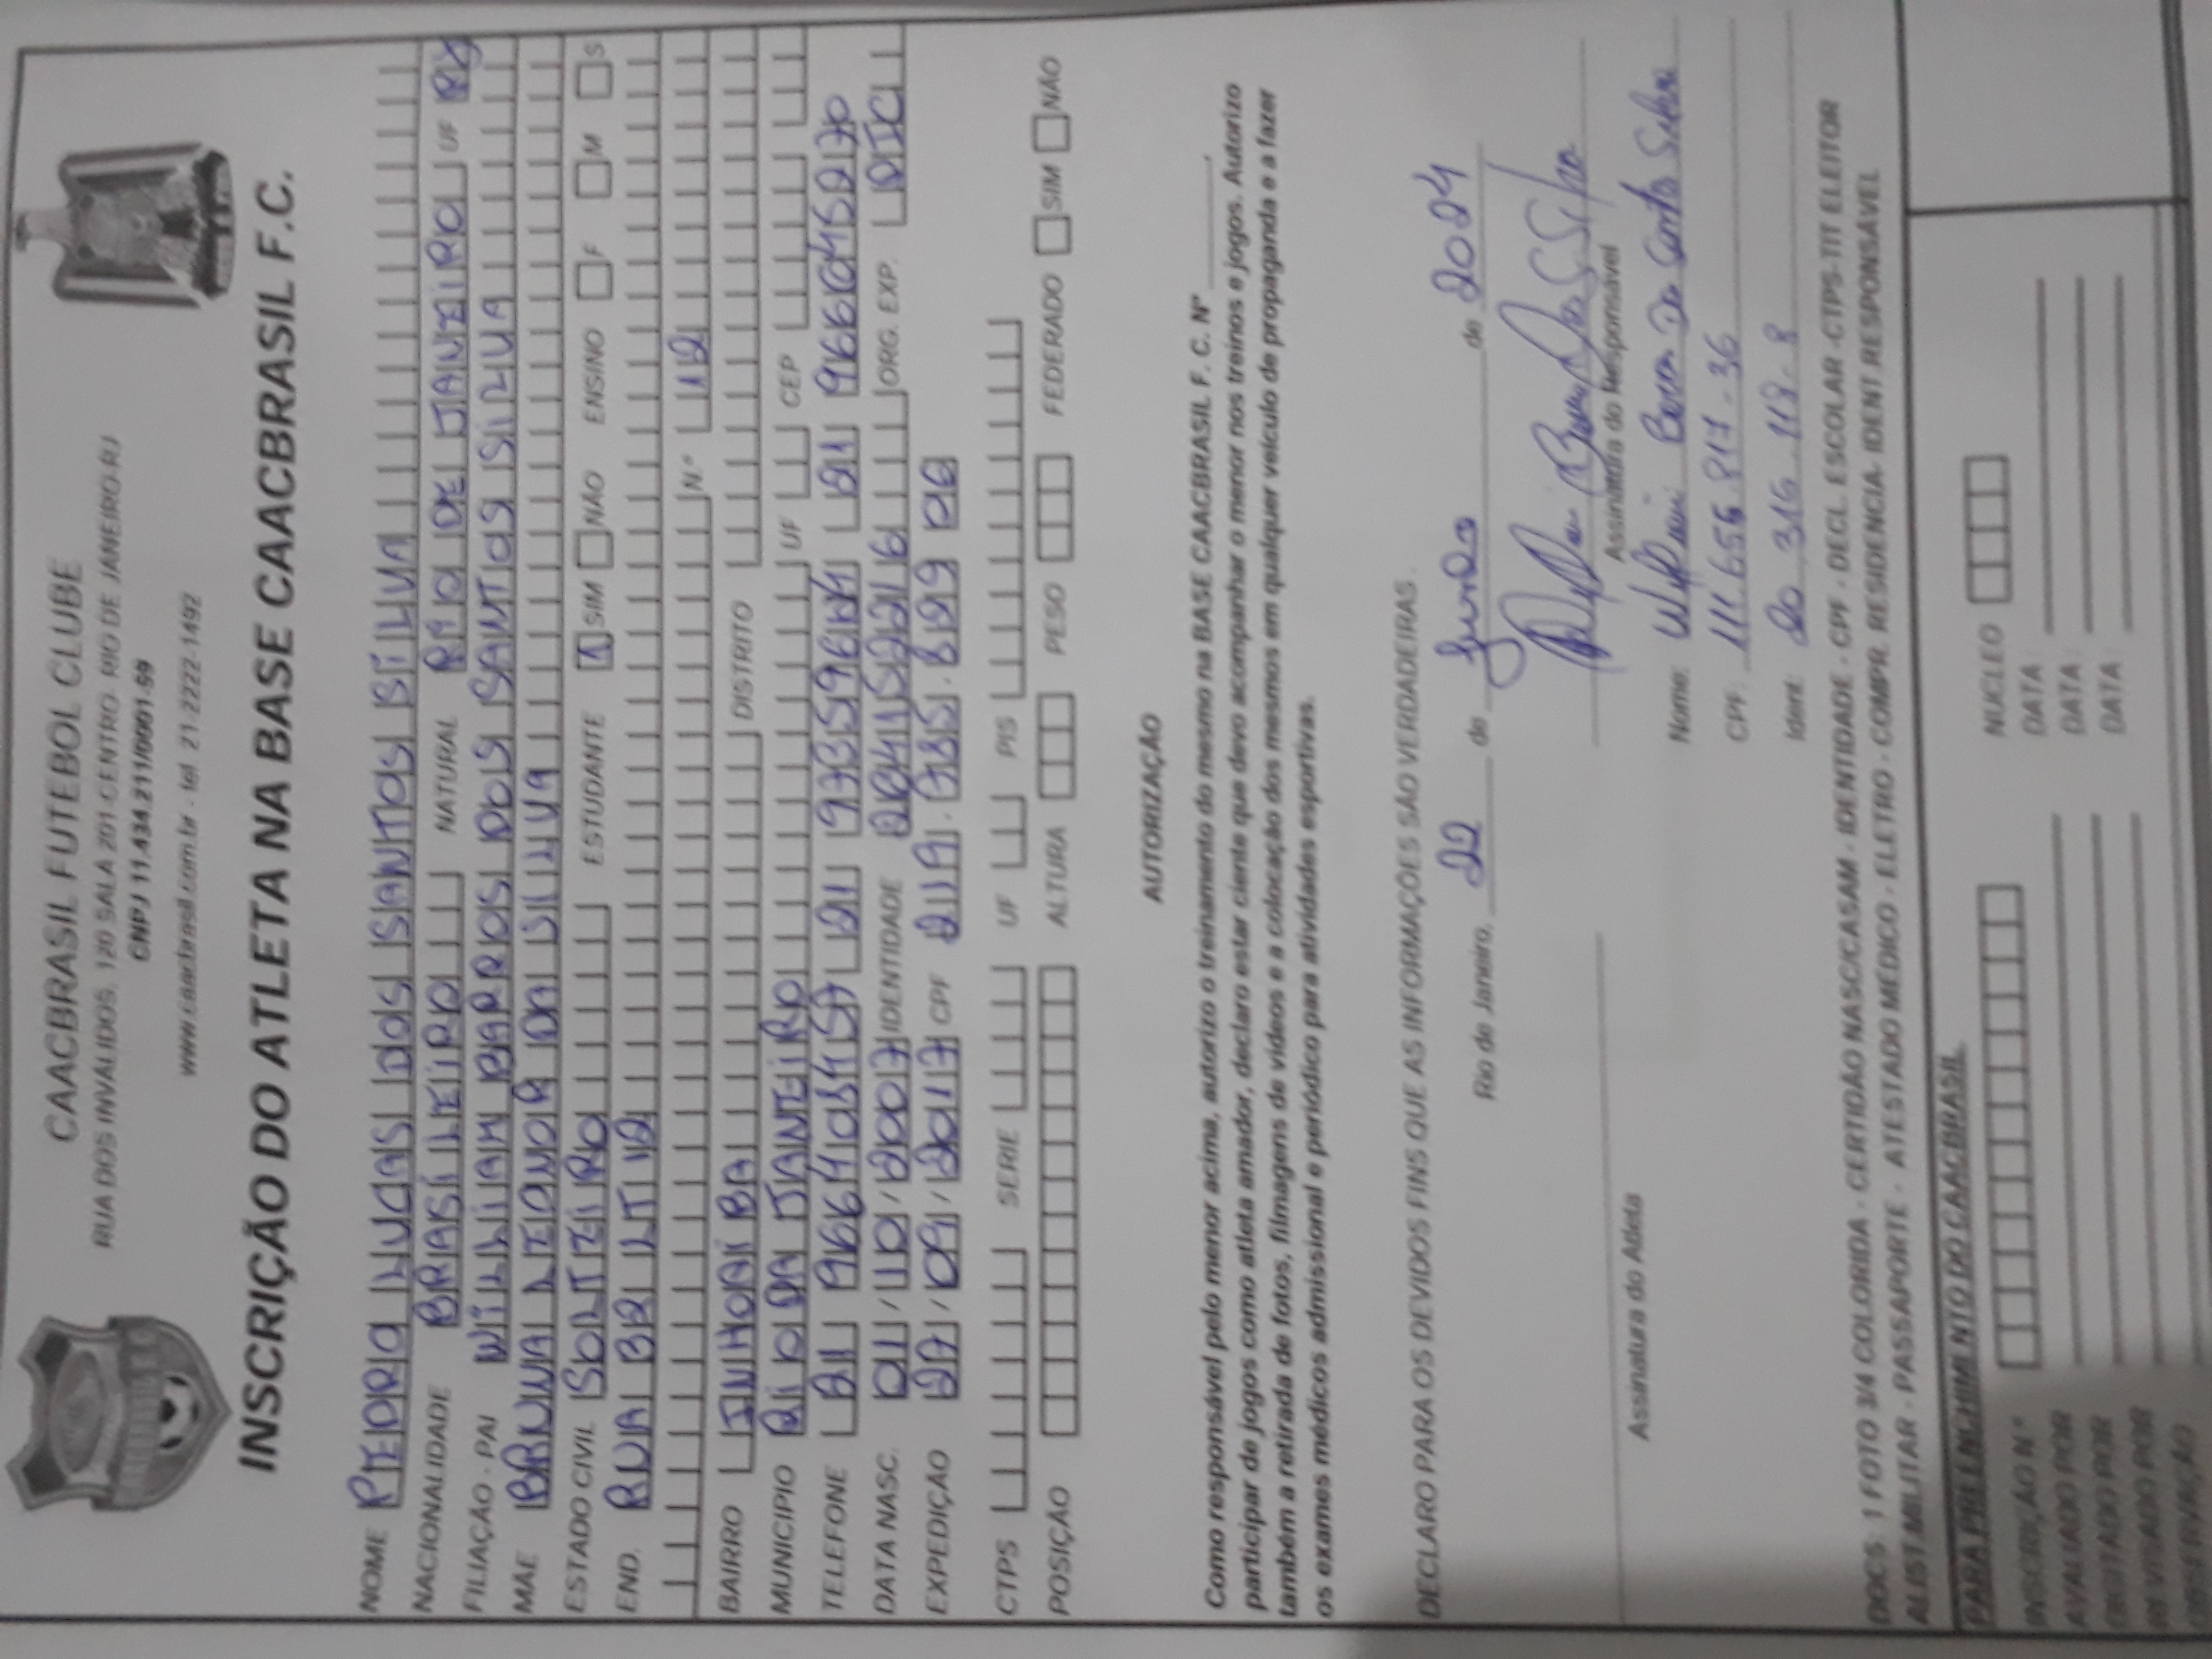 CAACBRASIL FUTEBOL CLUBE
RUA DOS INVÁLIDOS, 120 SALA 201-CENTRO- RIO DE JANEIRO-RJ
CNPJ 11.434.211/0001-59
www.caacbrasil.com.br - tel 21 2222-1492
INSCRIÇÃO DO ATLETA NA BASE CAACBRASIL F.C.
NOME PEDRO LUCAS DOS SANTOS SILVA
NACIONALIDADE BRASILEIRO NATURAL RIO DE JANEIRO UF RJ
FILIAÇÃO - PAI WILLIAM BARROS DOS SANTOS SILVA
MAE BRUNA LEONOR DA SILVA
ESTADO CIVIL SOLTEIRO ESTUDANTE SIM NÃO ENSINO F M S
END. RUA BQ LT 12
N.º 12
BAIRRO INHOAIBA DISTRITO
MUNICIPIO RIO DA JANEIRO UF CEP
TELEFONE 21 21 21
DATA NASC. 01/10/2007 IDENTIDADE ORG. EXP. DIC
EXPEDIÇÃO 27/09/2017 CPF
CTPS SERIE UF PIS
POSIÇÃO ALTURA PESO FEDERADO SIM NÃO
AUTORIZAÇÃO
Como responsável pelo menor acima, autorizo o treinamento do mesmo na BASE CAACBRASIL F. C. Nº ______,
participar de jogos como atleta amador, declaro estar ciente que devo acompanhar o menor nos treinos e jogos. Autorizo
também a retirada de fotos, filmagens de vídeos e a colocação dos mesmos em qualquer veículo de propaganda e a fazer
os exames médicos admissional e periódico para atividades esportivas.
DECLARO PARA OS DEVIDOS FINS QUE AS INFORMAÇÕES SÃO VERDADEIRAS.
Rio de Janeiro, 22 de Junho de 2024
Assinatura do Atleta
Assinatura do Responsável
Nome: Dos Santos Silva
CPF:
Ident: 20 316.118-8
DOCS: 1 FOTO 3/4 COLORIDA - CERTIDÃO NASC/CASAM - IDENTIDADE - CPF - DECL. ESCOLAR -CTPS-TIT ELEITOR
ALIST.MILITAR - PASSAPORTE - ATESTADO MÉDICO - ELETRO - COMPR. RESIDENCIA- IDENT.RESPONSÁVEL
PARA PREENCHIMENTO DO CAACBRASIL
INSCRIÇÃO N.º NUCLEO
AVALIADO POR DATA:
DIGITADO POR DATA:
REVISADO POR DATA:
OBSERVAÇÃO